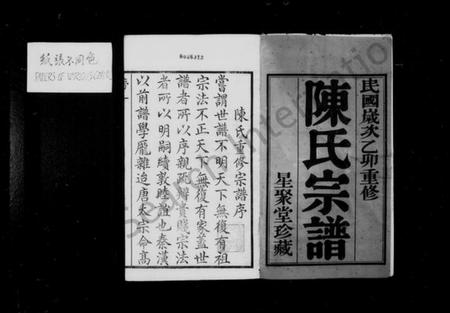 民國歲次乙卯重修
陳氏宗譜
星聚堂珍藏
陳氏重修宗譜序
嘗謂世譜不明天下無復有祖
宗法不正天下無復有家蓋世
譜者所以序親疎
宗法
者所以明嗣續敦睦
也秦漢
以前譜學龎雜迨唐太宗命高
紙張不同色
PAPERS OF VARIOUS COLOR